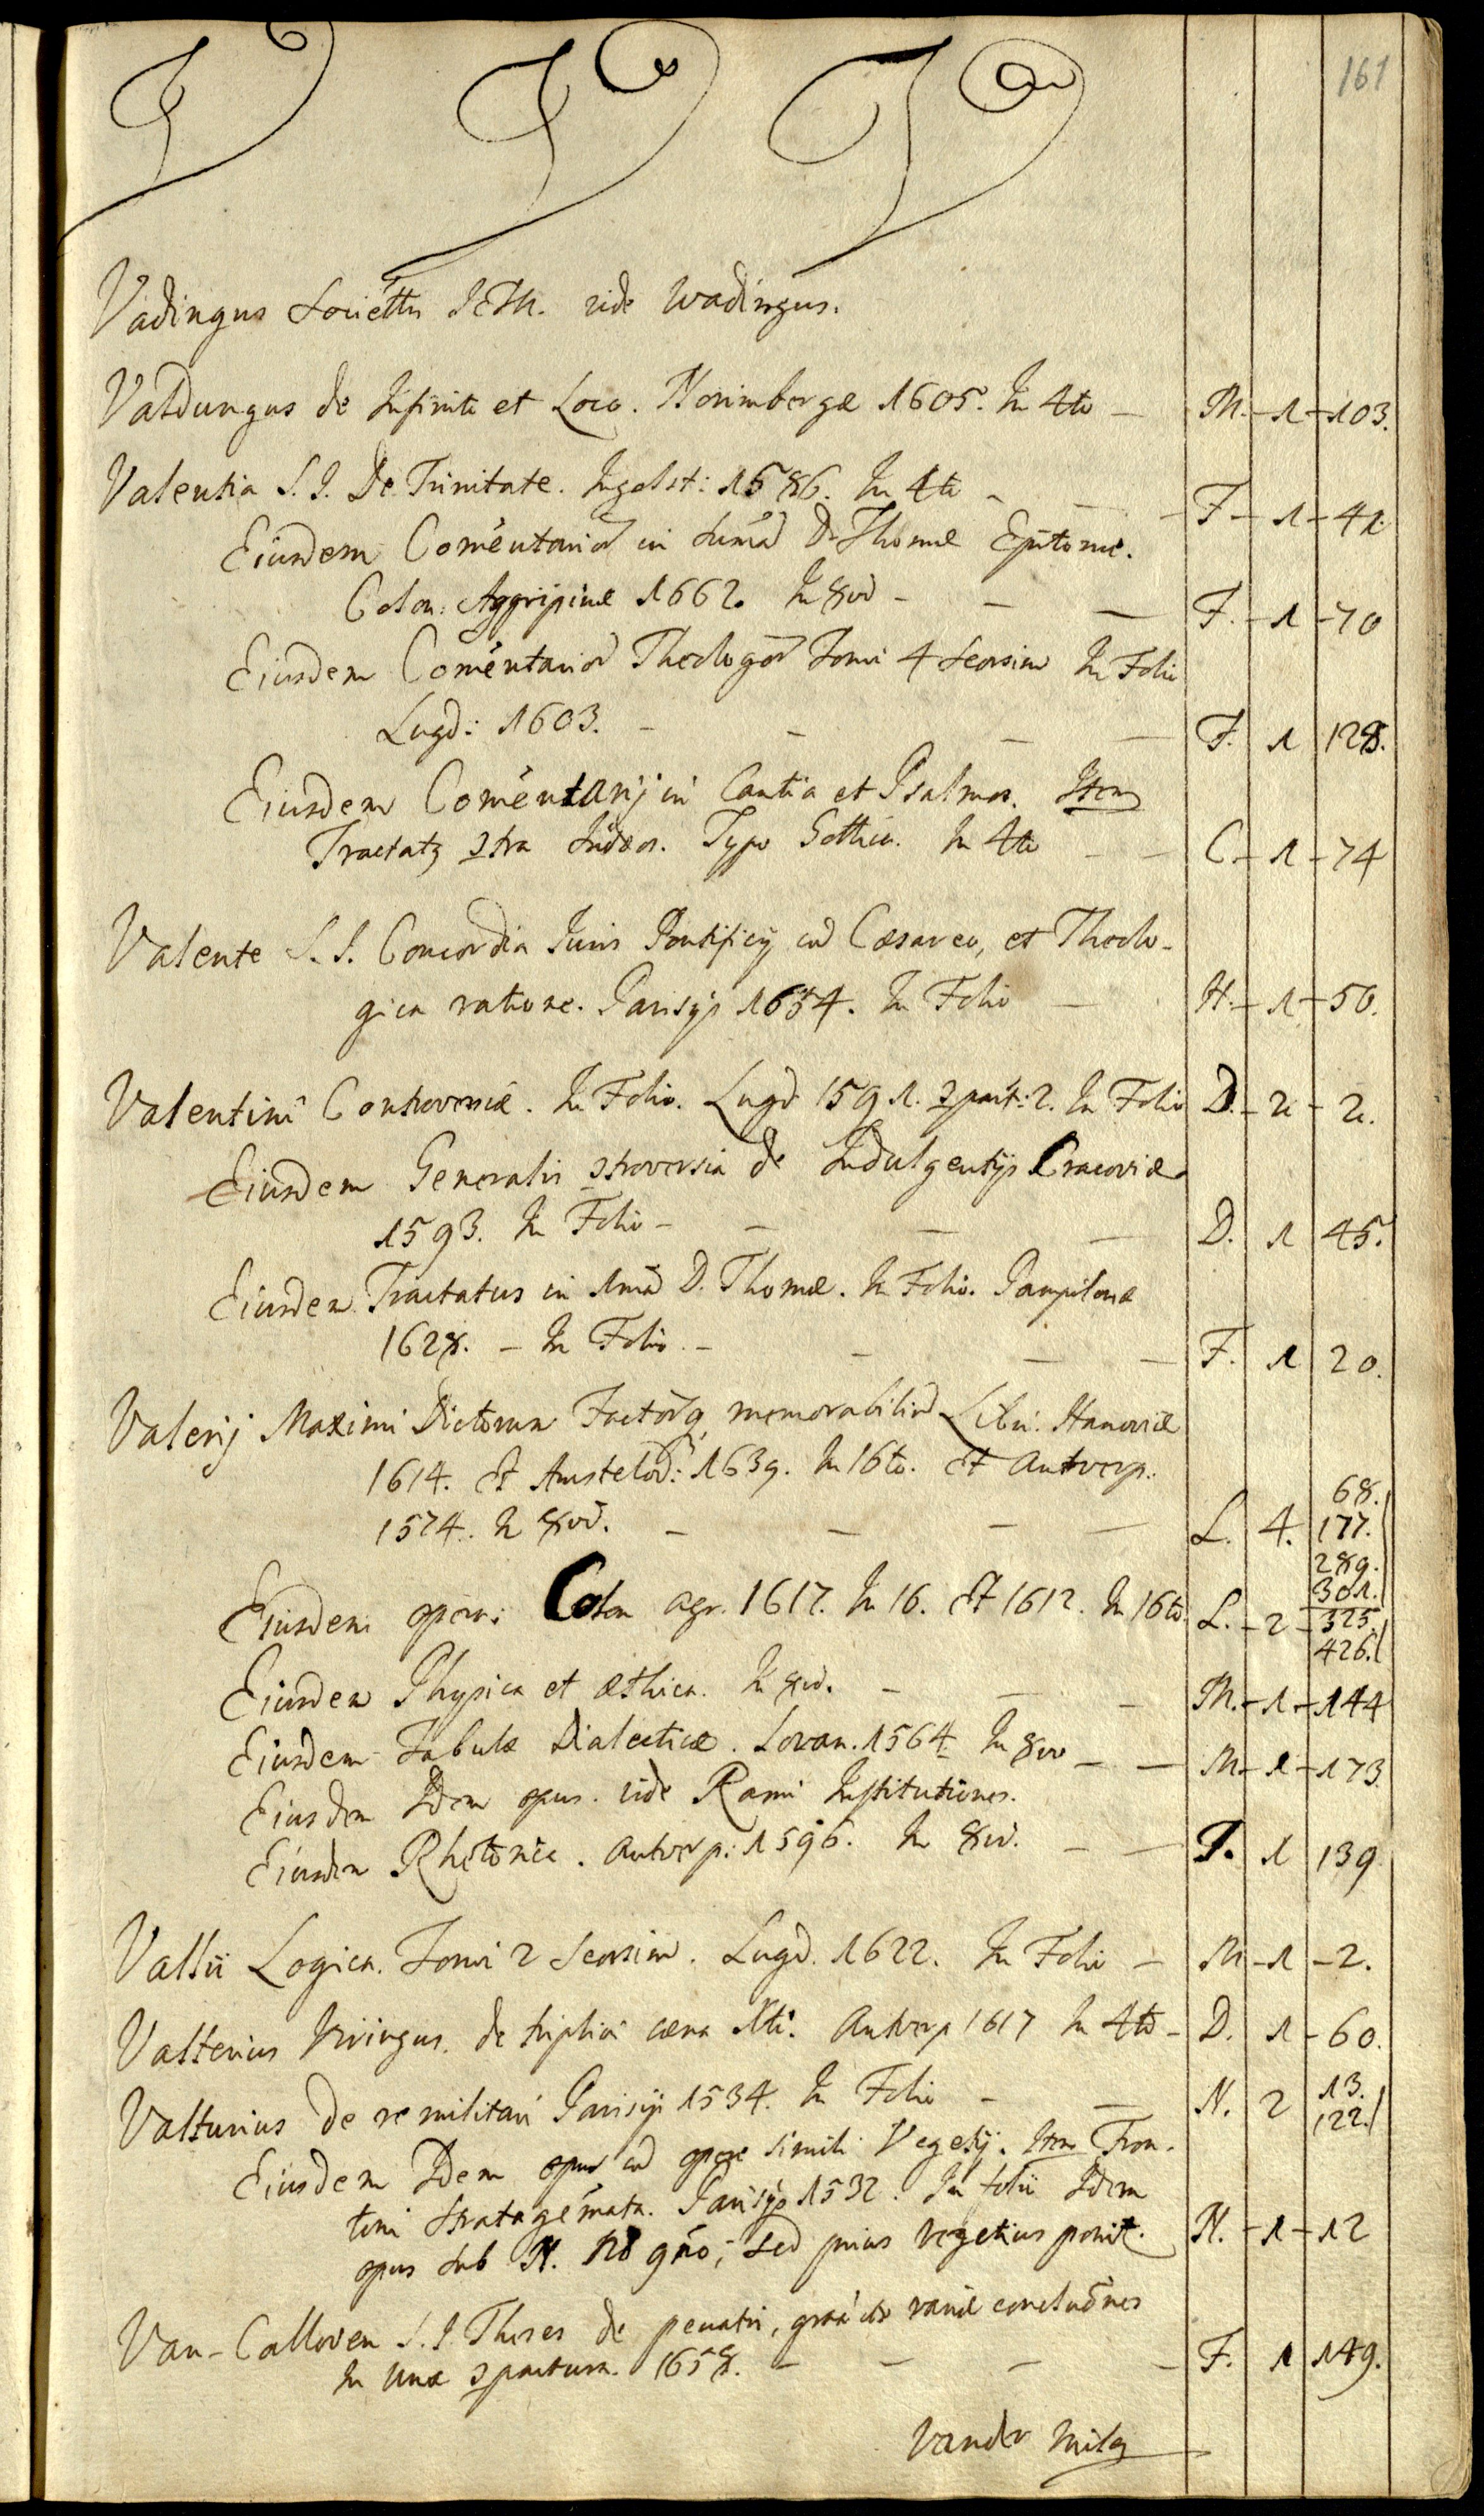 161
V V V
Vadingus Societtis JESu. vide Wadingus.
Valdungus de Infinito et Loco. Norimbergæ 1605. In 4to — M. - 1 - 103.
Valentia S. J. De Trinitate. Ingolst: 1586. In 4to - F - 1 - 41.
Eiusdem Comētariorū in Sumā D. Thomæ Epitome.
Colon: Aggripinæ 1662. In 8vo - — — F. - 1 - 70
Eiusdem Comēntariorū Theologorū Tomi 4 Seorsim In Folio
Lugd: 1603. - - — — F. 1 128.
Eiusdem Comēntarij in Cantica et Psalmos. Item
Tractatq 3tra Iudæos. Typo Gothico. In 4to - - C. - 1 - 74
Valente S. J. Concordia Juris Pontificij cū Cæsareo, et Theolo-
gica ratione. Parisijs 1654. In Folio — H. - 1 - 50.
Valentini Controversiæ. In Folio. Lugd 1591. 3part: 2. In Folio D. - 2 - 2.
Eiusdem Generalis 3troversia de Indulgentijs Cracoviæ
1593. In Folio - — — — D. 1 45.
Eiusdem Tractatus in 1mā D. Thomæ. In Folio. Pampilonæ
1628. - In Folio - — — — F. 1 20.
Valerij Maximi Dictorum Factorūq memorabiliū Libri. Hanoviæ
1614. Et Amstelod: 1639. In 16to. Et Antverp:
1574. In 8vo. - — — — L. 4. 68. 177. 289. 301.
Eiusdem opera: Colon agr. 1617. In 16. Et 1612. In 16to. L. - 2 - 325. 426.
Eiusdem Physica et æthica. In 8vo. - — - M. - 1 - 144
Eiusdem Tabulæ Dialecticæ. Lovan. 1564 In 8vo - — M. - 1 - 173
Eiusdem Idem opus. vide Rami Institutiones.
Eiusdem Rhetorica. Antverp: 1596. In 8vo. - — P. 1 139
Vallii Logica. Tomi 2 Seorsim. Lugd. 1622. In Folio — M - 1 - 2.
Valterius Vivingus. de triplici cæna Xti. Antverp 1617 In 4to - D. 1 - 60.
Valturius De re militari Parisijs 1534. In Folio - — N. 2 13. 122.
Eiusdem Idem opus cū opere simili Vegetij. Item Fron-
tini Stratagēmata. Parisijs 1532. In folio Idem
opus sub N. 128 gno; sed prius Vegetius ponit. N. - 1 - 12
Van-Calloven S. J. Theses de peccatis, grāa etc varie conclusiōnes
In Una 3pactura. 1658. - — — - F. 1 149.
Vander Mila